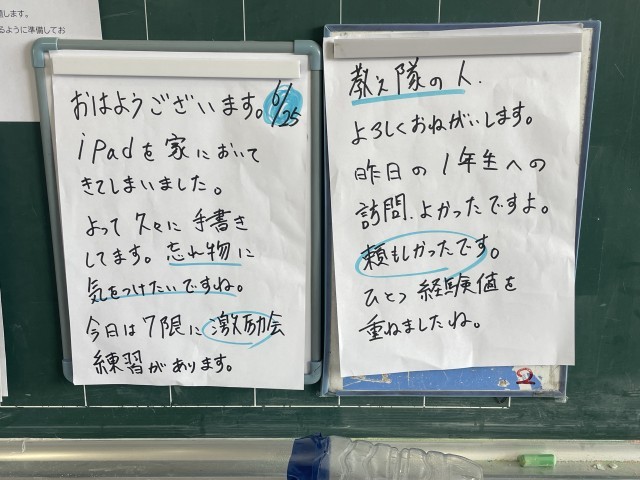 します。
るように準備してお
おはようございます。6/25
iPadを家において
きてしまいました。
よって久々に手書き
してます。忘れ物に
気をつけたいですね。
今日は7限に激励会
練習があります。
教え隊の人.
よろしくおねがいします。
昨日の1年生への
訪問.よかったですよ。
頼もしかったです。
ひとつ経験値を
重ねましたね。